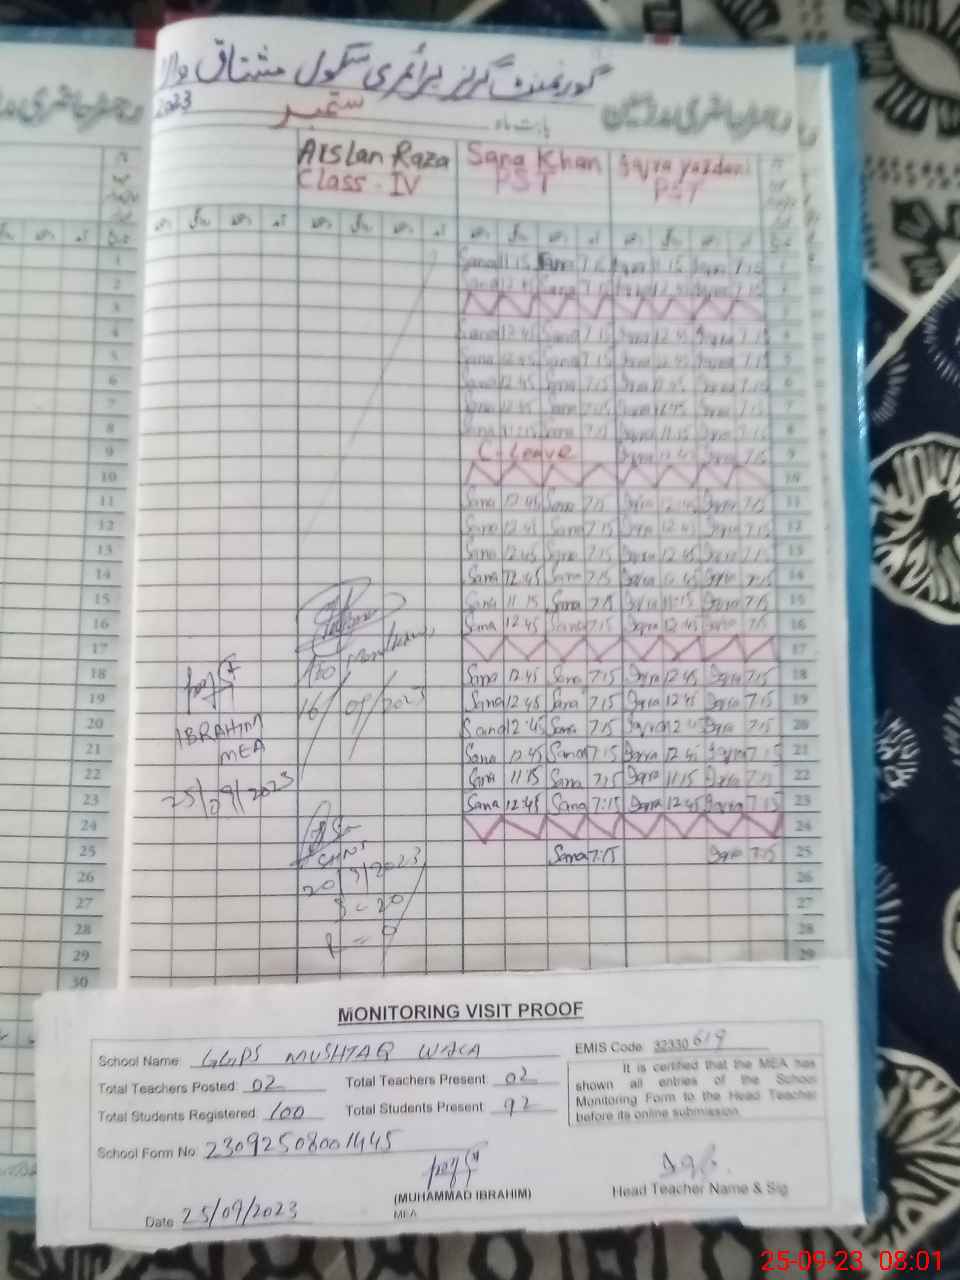 گورنمنٹ گرلز پرائمری سکول مشتاق والا
2023 ستمبر
Arslan Raza Sana Khan Iqra Yazdani
Class - IV PST PST
1 Sana 11.15 Sana 7.15 Iqra 11.15 Iqra 7.15 1
2 Sana 12.45 Sana 7.15 Iqra 12.45 Iqra 7.15
3
4 Sana 12.45 Sana 7.15 Iqra 12.45 Iqra 7.15 4
5 Sana 12.45 Sana 7.15 Iqra 12.45 Iqra 7.15 5
6 Sana 12.45 Sana 7.15 Iqra 12.45 Iqra 7.15 6
7 Sana 12.45 Sana 7.15 Iqra 12.45 Iqra 7.15 7
8 Sana 11.15 Sana 7.15 Iqra 11.15 Iqra 7.15 8
9 C-Leave Iqra 12.45 Iqra 7.15 9
10 10
11 Sana 12.45 Sana 7.15 Iqra 12.45 Iqra 7.15 11
12 Sana 12.45 Sana 7.15 Iqra 12.45 Iqra 7.15 12
13 Sana 12.45 Sana 7.15 Iqra 12.45 Iqra 7.15 13
14 Sana 12.45 Sana 7.15 Iqra 12.45 Iqra 7.15 14
15 Sana 11.15 Sana 7.15 Iqra 11.15 Iqra 7.15 15
16 Sana 12.45 Sana 7.15 Iqra 12.45 Iqra 7.15 16
17 17
18 Sana 12.45 Sana 7.15 Iqra 12.45 Iqra 7.15 18
19 16/09/2023 Sana 12.45 Sana 7.15 Iqra 12.45 Iqra 7.15 19
20 IBRAHIM Sana 12.45 Sana 7.15 Iqra 12.45 Iqra 7.15 20
21 MEA Sana 12.45 Sana 7.15 Iqra 12.45 Iqra 7.15 21
22 Sana 11.15 Sana 7.15 Iqra 11.15 Iqra 7.15 22
23 25/09/2023 Sana 12.45 Sana 7:15 Iqra 12.45 Iqra 7.15 23
24 24
25 Sana 7.15 Iqra 7.15 25
26 20/9/2023 26
27 27
28 28
29 29
30
MONITORING VISIT PROOF
School Name: GGPS MUSHTAQ WALA EMIS Code 32330619
Total Teachers Posted 02 Total Teachers Present 02
Total Students Registered 100 Total Students Present 92
It is certified that the MEA has shown all entries of the School Monitoring Form to the Head Teacher before its online submission.
School Form No 23092508001445
(MUHAMMAD IBRAHIM) Head Teacher Name & Sig
MEA
Date 25/09/2023
25-09-23 08:01